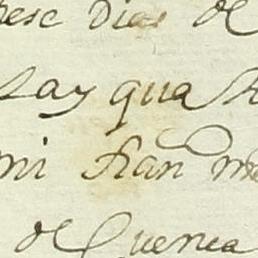 pese Dias de
say qua
mi Fran
de Cuenca